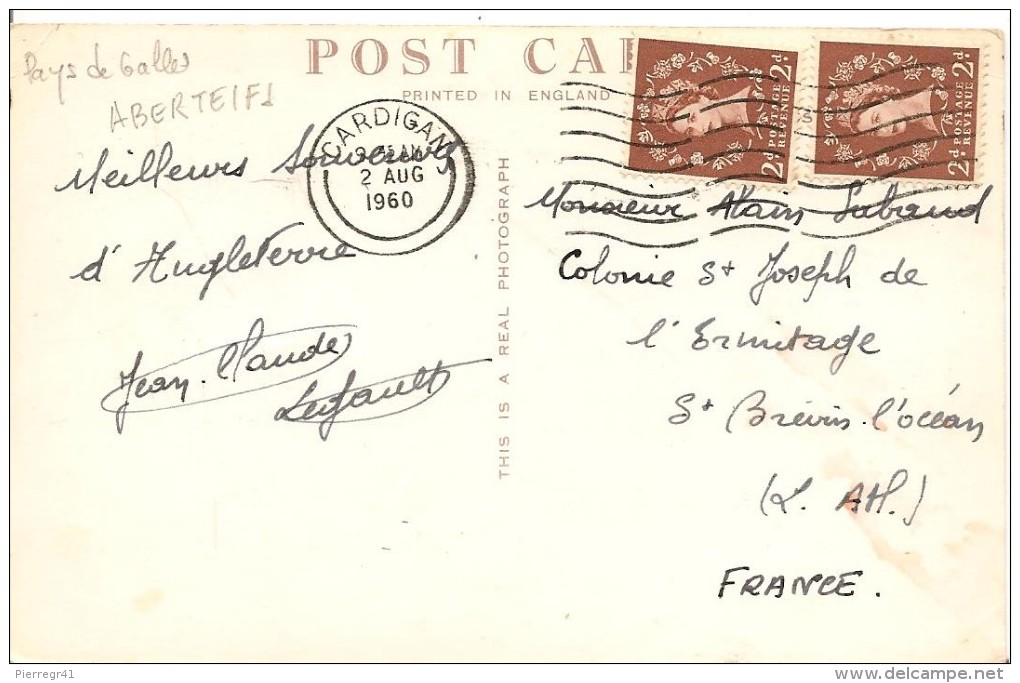 Pays de Galles
ABERTEIFI
POST CA
PRINTED IN ENGLAND
CARDIGAN
2 AUG
1960
2d POSTAGE REVENUE 2d
2d POSTAGE REVENUE 2d
Meilleurs souvenirs
d'Angleterre
Jean-Claude
THIS IS A REAL PHOTOGRAPH
Monsieur Alain
Colonie St Joseph de
l'Ermitage
St Brévin l'océan
(L. Atl.)
FRANCE.
Pierregr41
www.delcampe.net